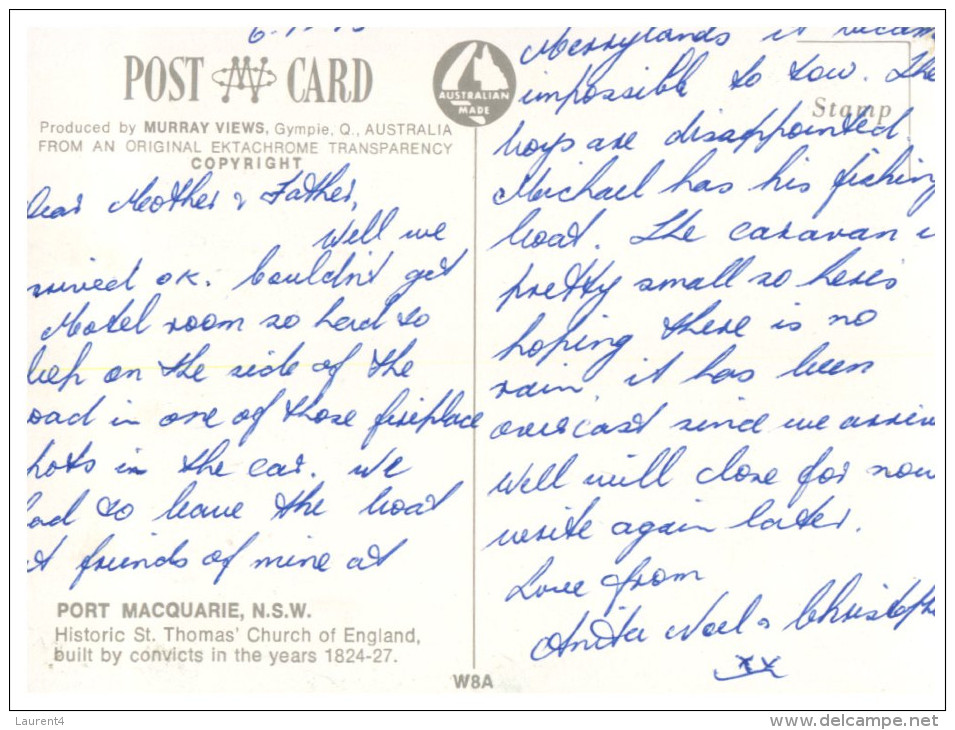 POST CARD
AUSTRALIAN
MADE
Produced by MURRAY VIEWS, Gympie, Q., AUSTRALIA
FROM AN ORIGINAL EKTACHROME TRANSPARENCY
COPYRIGHT
Dear Mother & Father,
Well we
rrived OK. Couldn't get
Motel room so had to
leep on the side of the
oad in one of those fireplace
pots in the car. We
ad to leave the boat
at friends of mine at
PORT MACQUARIE, N.S.W.
Historic St. Thomas' Church of England,
built by convicts in the years 1824-27.
W8A
Stamp
Merrylands it becam
impossible to tow. The
boys are disappointed
Michael has his fishing
boat. The caravan i
pretty small so here's
hoping there is no
rain, it has been
overcast since we arriv
Well will close for now
write again later.
Love from
Anita Noel & Christoph
xx
Laurent4
www.delcampe.net